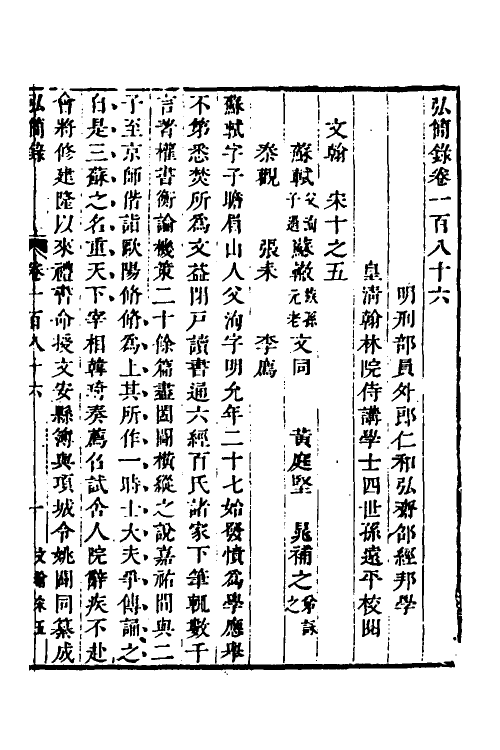 弘簡錄卷一百八十六
明刑部員外郎仁和弘齋邵經邦學
皇清翰林院侍講學士四世孫遠平校閱
文翰 宋十之五
蘇軾父洵子過蘇轍族孫元老文同 黃庭堅 晁補之詠之
秦觀 張耒 李廌
蘇軾字子瞻眉山人父洵字明允年二十七始發憤爲學應舉
不第悉焚所爲文益閉戶讀書通六經百氏諸家下筆輒數千
言著權書衡論機策二十餘篇盡闔闢橫縱之說嘉祐間與二
子至京師偕詣歐陽脩脩爲上其所作一時士大夫爭傳誦之
自是三蘇之名重天下宰相韓琦奏薦召試舍人院辭疾不赴
會將修建隆以來禮書命授文安縣簿與項城令姚闢同纂成
弘簡錄 卷一百八十六 一 文翰宋五